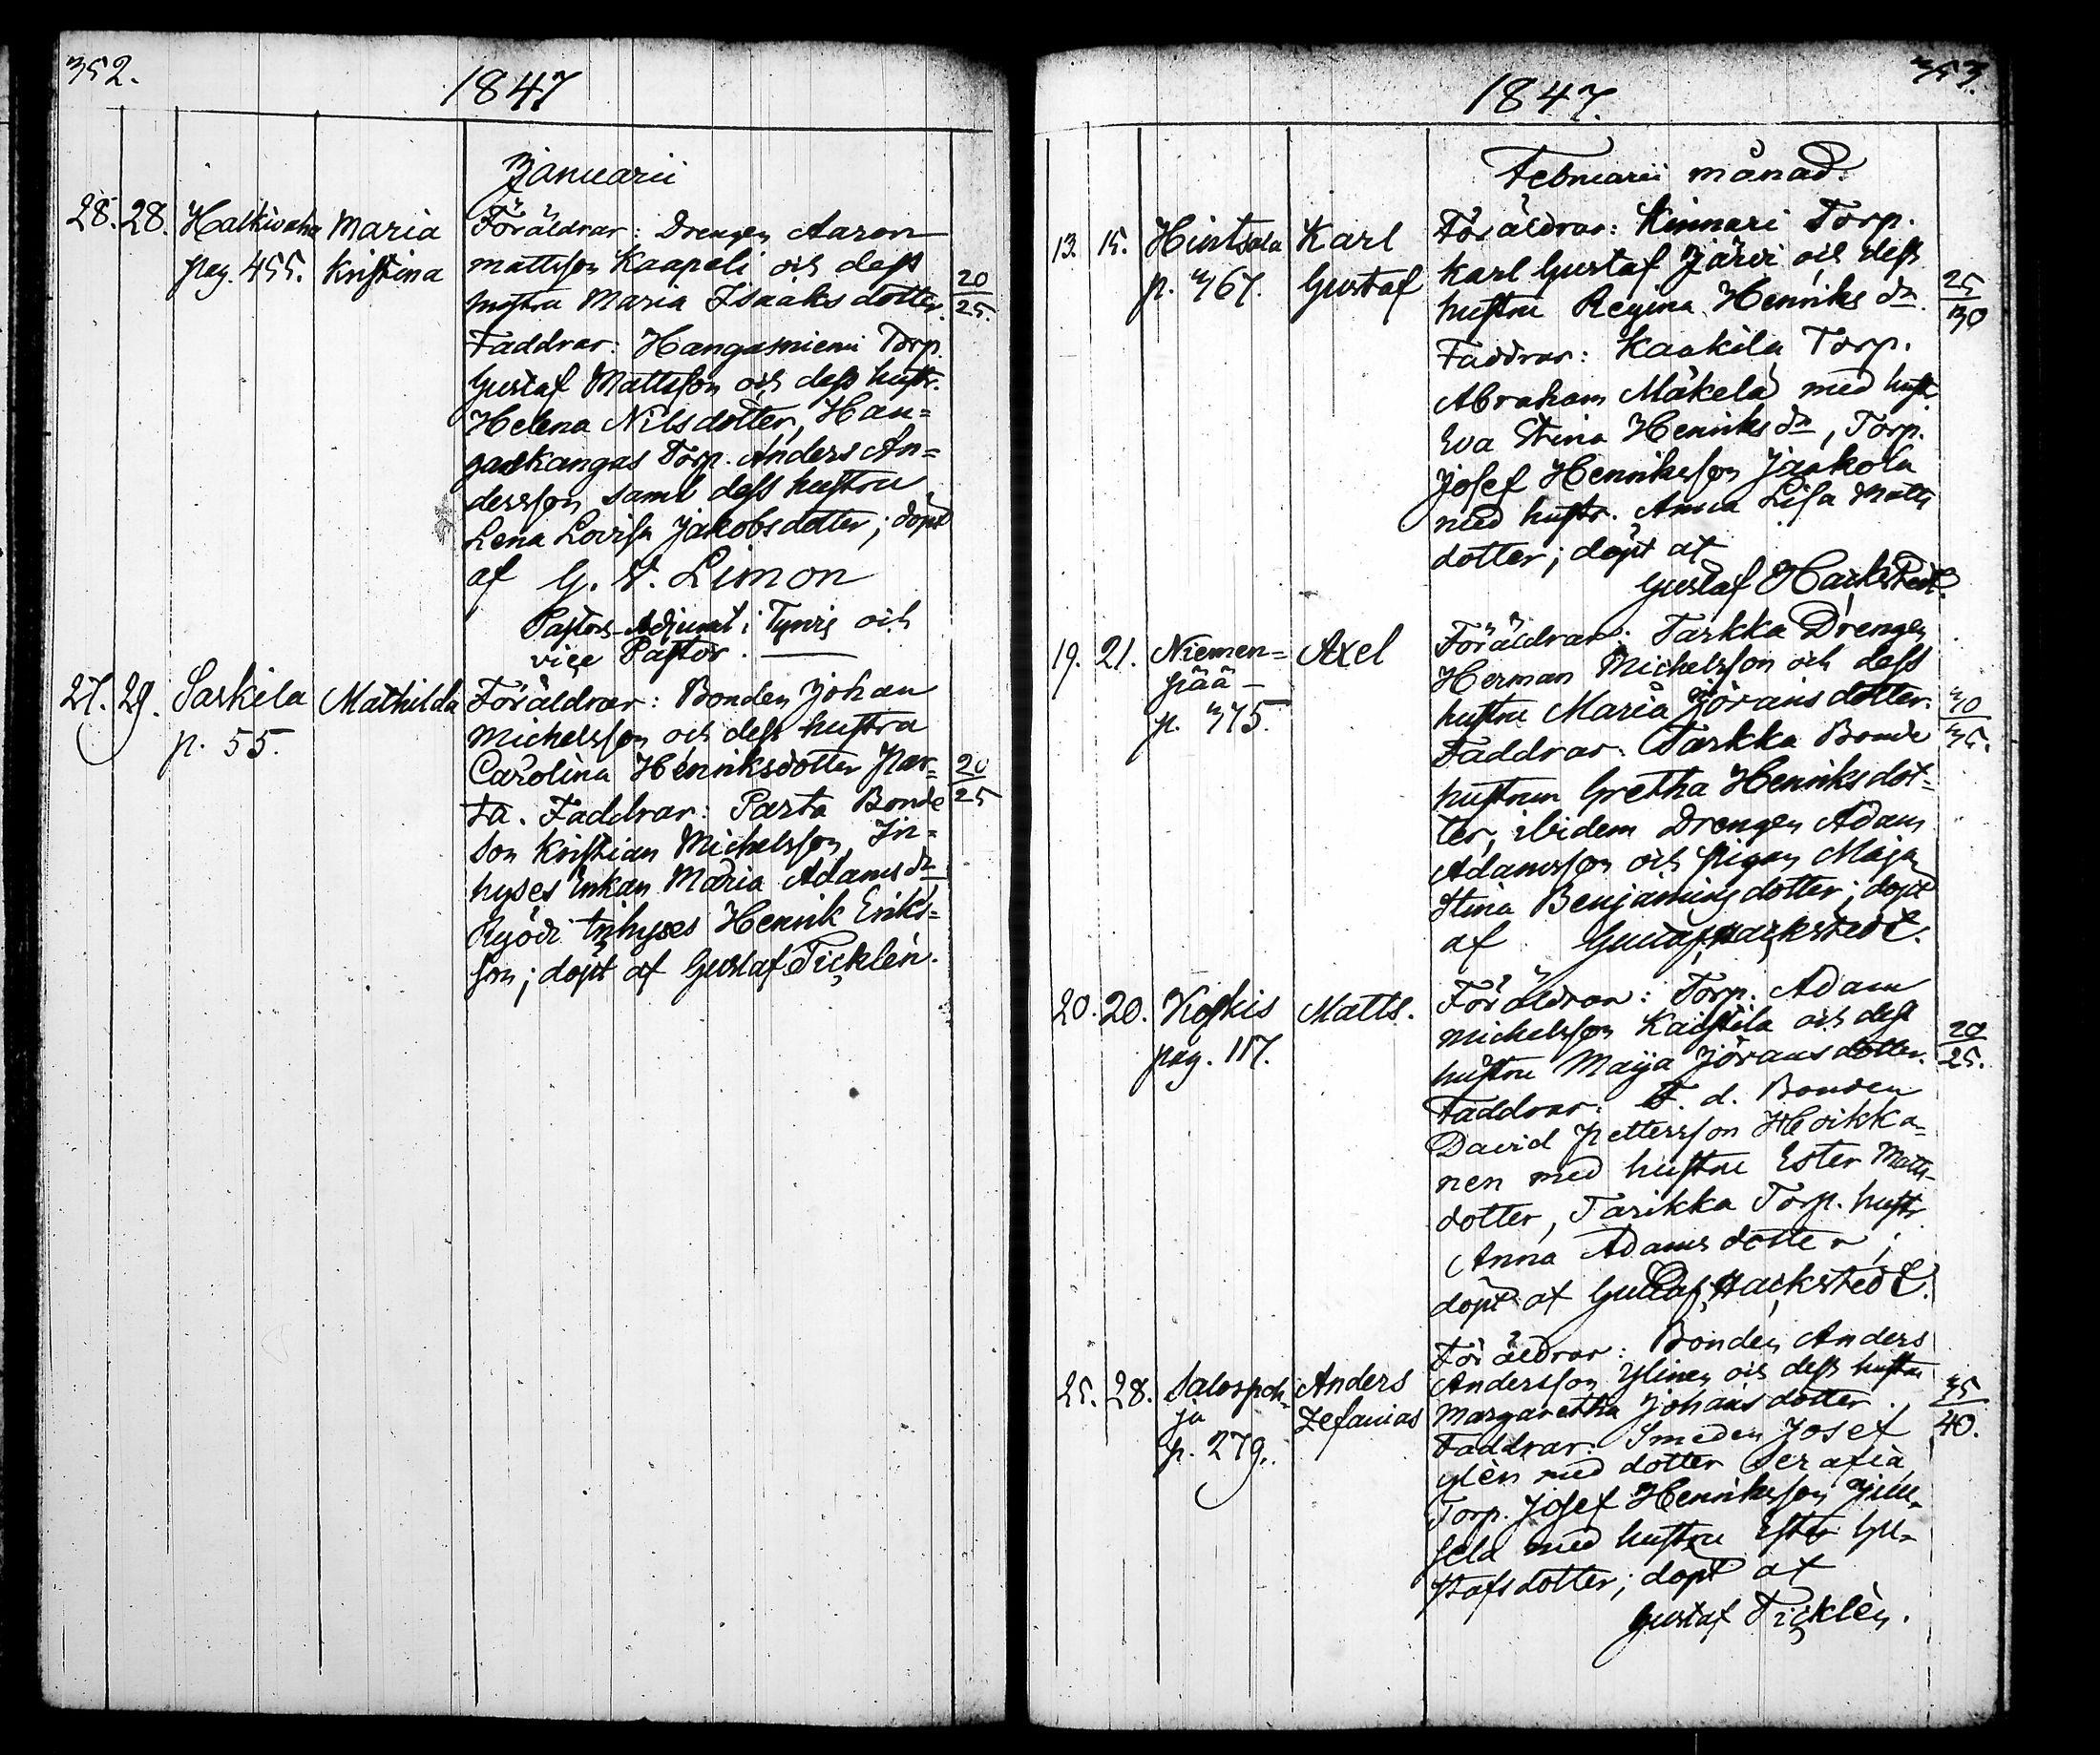 352.
1847
Januarii
28. 28. Halkivaha Maria Föräldrar: Drengen Aaron
pag. 455. Kristina Mattsson Kaapeli och dess
hustru Maria Isaaksdotter. 20/25.
Faddrar: Hangasniemi Torp.
Gustaf Mattsson och dess hustr.
Helena Nilsdotter, Han=
gaskangas Torp. Anders An=
dersson samt dess hustru
Lena Lovisa Jakobsdotter; döpt
af G. A. Limon
Pastors Adjunct i Tyrvis och
vice Pastor.
27. 29. Sarkila Mathilda Föräldrar: Bonden Johan
p. 55. Michelsson och dess hustru
Carolina Henriksdotter Par= 20/25
ta. Faddrar: Parta Bonde
son Kristian Michelsson, In=
hyses Enkan Maria Adamsdr
Ryödi Inhyses Henrik Eriks=
son; döpt af Gustaf Ticklén.
353.
1847.
Februarii månad.
13. 15. Hintsala Karl Föräldrar: Kinnari Torp.
p. 367. Gustaf Karl Gustaf Järvi och dess
hustru Regina Henriksdr. 25/30
Faddrar: Kaakila Torp.
Abraham Mäkelä med hust.
Eva Stina Henriksdr, Torp.
Josef Henriksson Jaakola
med hustr. Anna Lisa Matts
dotter; döpt af
Gustaf Hackstedt.
19. 21. Niemen= Axel Föräldrar: Tarkka Drengen
pää Herman Michelsson och dess
p. 375. hustru Maria Göransdotter. 30/35.
Faddrar: Tarkka Bonde
hustrun Gretha Henriksdot=
ter, ibidem Drengen Adam
Adamsson och Pigan Maja
Stina Benjaminsdotter; döpt
af Gustaf Hackstedt.
20. 20. Koskis Matts. Föräldrar: Torp. Adam
pag. 117. Michelsson Kaistila och dess
hustru Maija Jöransdotter. 20/25.
Faddrar: F. d. Bonden
David Pettersson Heikka=
nen med hustru Ester Matts=
dotter, Tarikka Torp. hustr
Anna Adamsdotter;
döpt af Gustaf Hackstedt.
25. 28. Salospoh= Anders Föräldrar: Bonden Anders
ja Zefanias Andersson Ylinen och dess hustru
p. 279. Margaretha Johansdotter. 35/40.
Faddrar: Smeden Josef
ylén med dotter Serafia,
Torp. Josef Henriksson
med hustru Ester Gu=
stafsdotter; döpt af
Gustaf Ticklén.